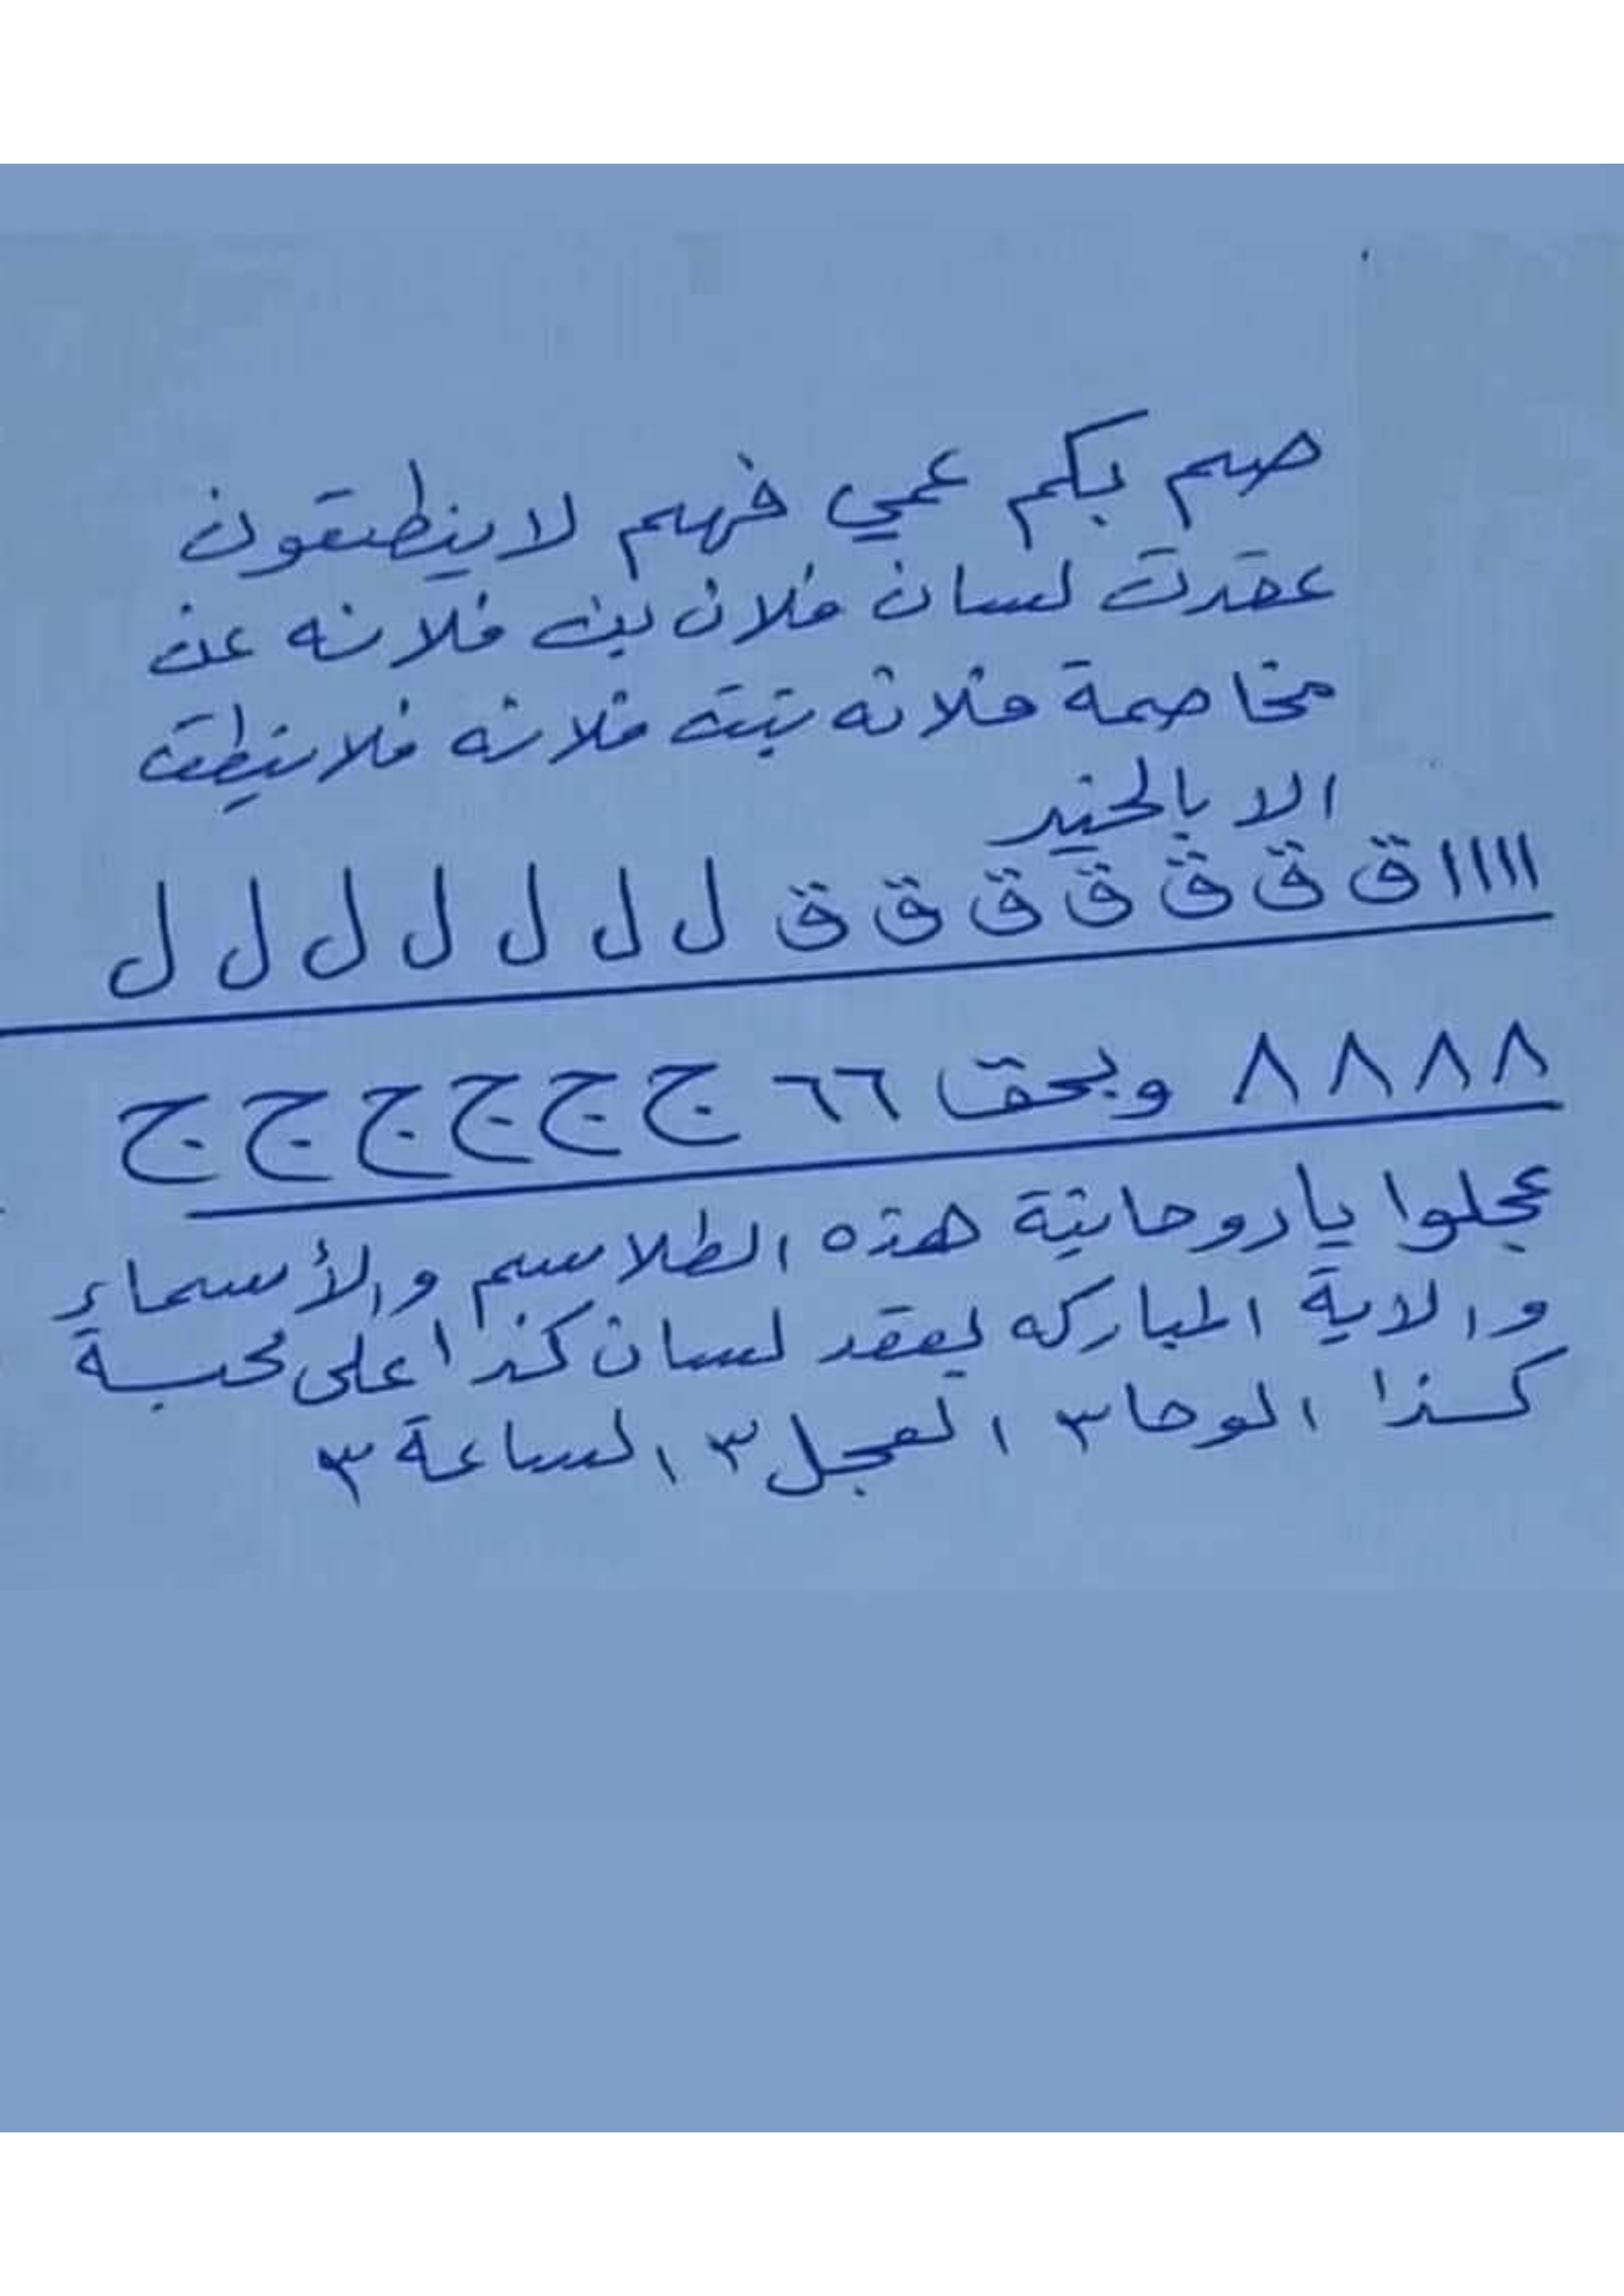 صم بكم عمي فهم لا ينطقون
عقدت لسان فلان بن فلانه عن
مخاصمة فلانه بنت فلانه فلا ينطق
الا بالخير
١١١١ ق ق ق ق ق ق ق ل ل ل ل ل ل ل
٨ ٨ ٨ ٨ وبحق ٦٦ ج ج ج ج ج ج
عجلوا يا روحانية هذه الطلاسم والأسماء
والاية المباركه بعقد لسان كذا على محبة
كذا الوحا ٣ العجل ٣ الساعة ٣